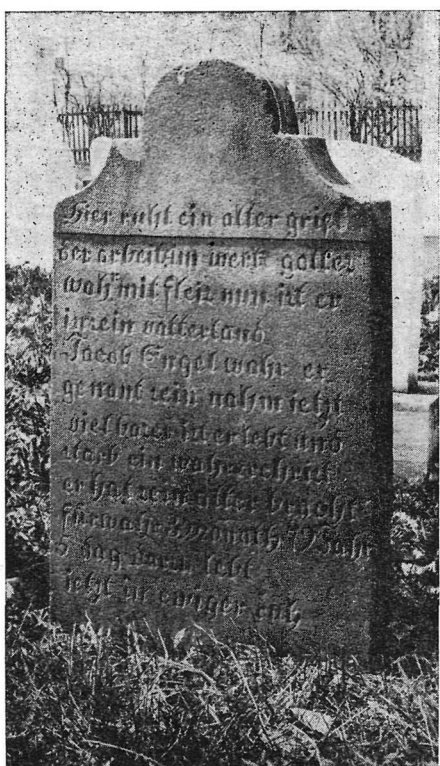 Hier ruht ein alter gries
der arbeit im werk gottes
wahr mit fleiz nun ist er
in sein vatterland
Jacob Engel wahr er
genant sein nahm jetzt
viel ist er lebt und
starb ein wahrer christ
er hat sein alter bracht
fürwahr 3 monath 79 jahr
5 dag lebt
jetzt in ewiger ruh